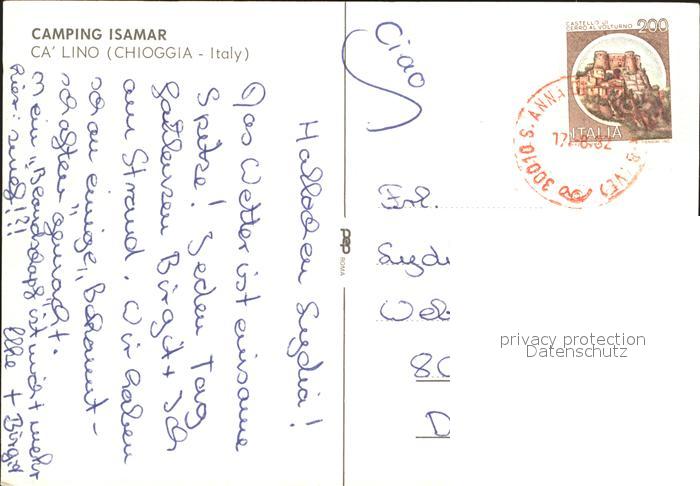 CAMPING ISAMAR
CA' LINO (CHIOGGIA - Italy)
Ciao
Hallöchen Sugdia!
Das Wetter ist einsame
Spitze! Jeden Tag
faulenzen Birgit + Ich
am Strand. Wir haben
schon einige "Bekannt-
schaften" gemacht.
mein "Beandschaft" ist nicht mehr
hier: schnief!?!
Elke + Birgit
pep ROMA
Frl.
Web
8.0
D
CASTELLO DI
CERRO AL VOLTURNO 200
ITALIA
30010 S. ANNA (VE)
privacy protection
Datenschutz